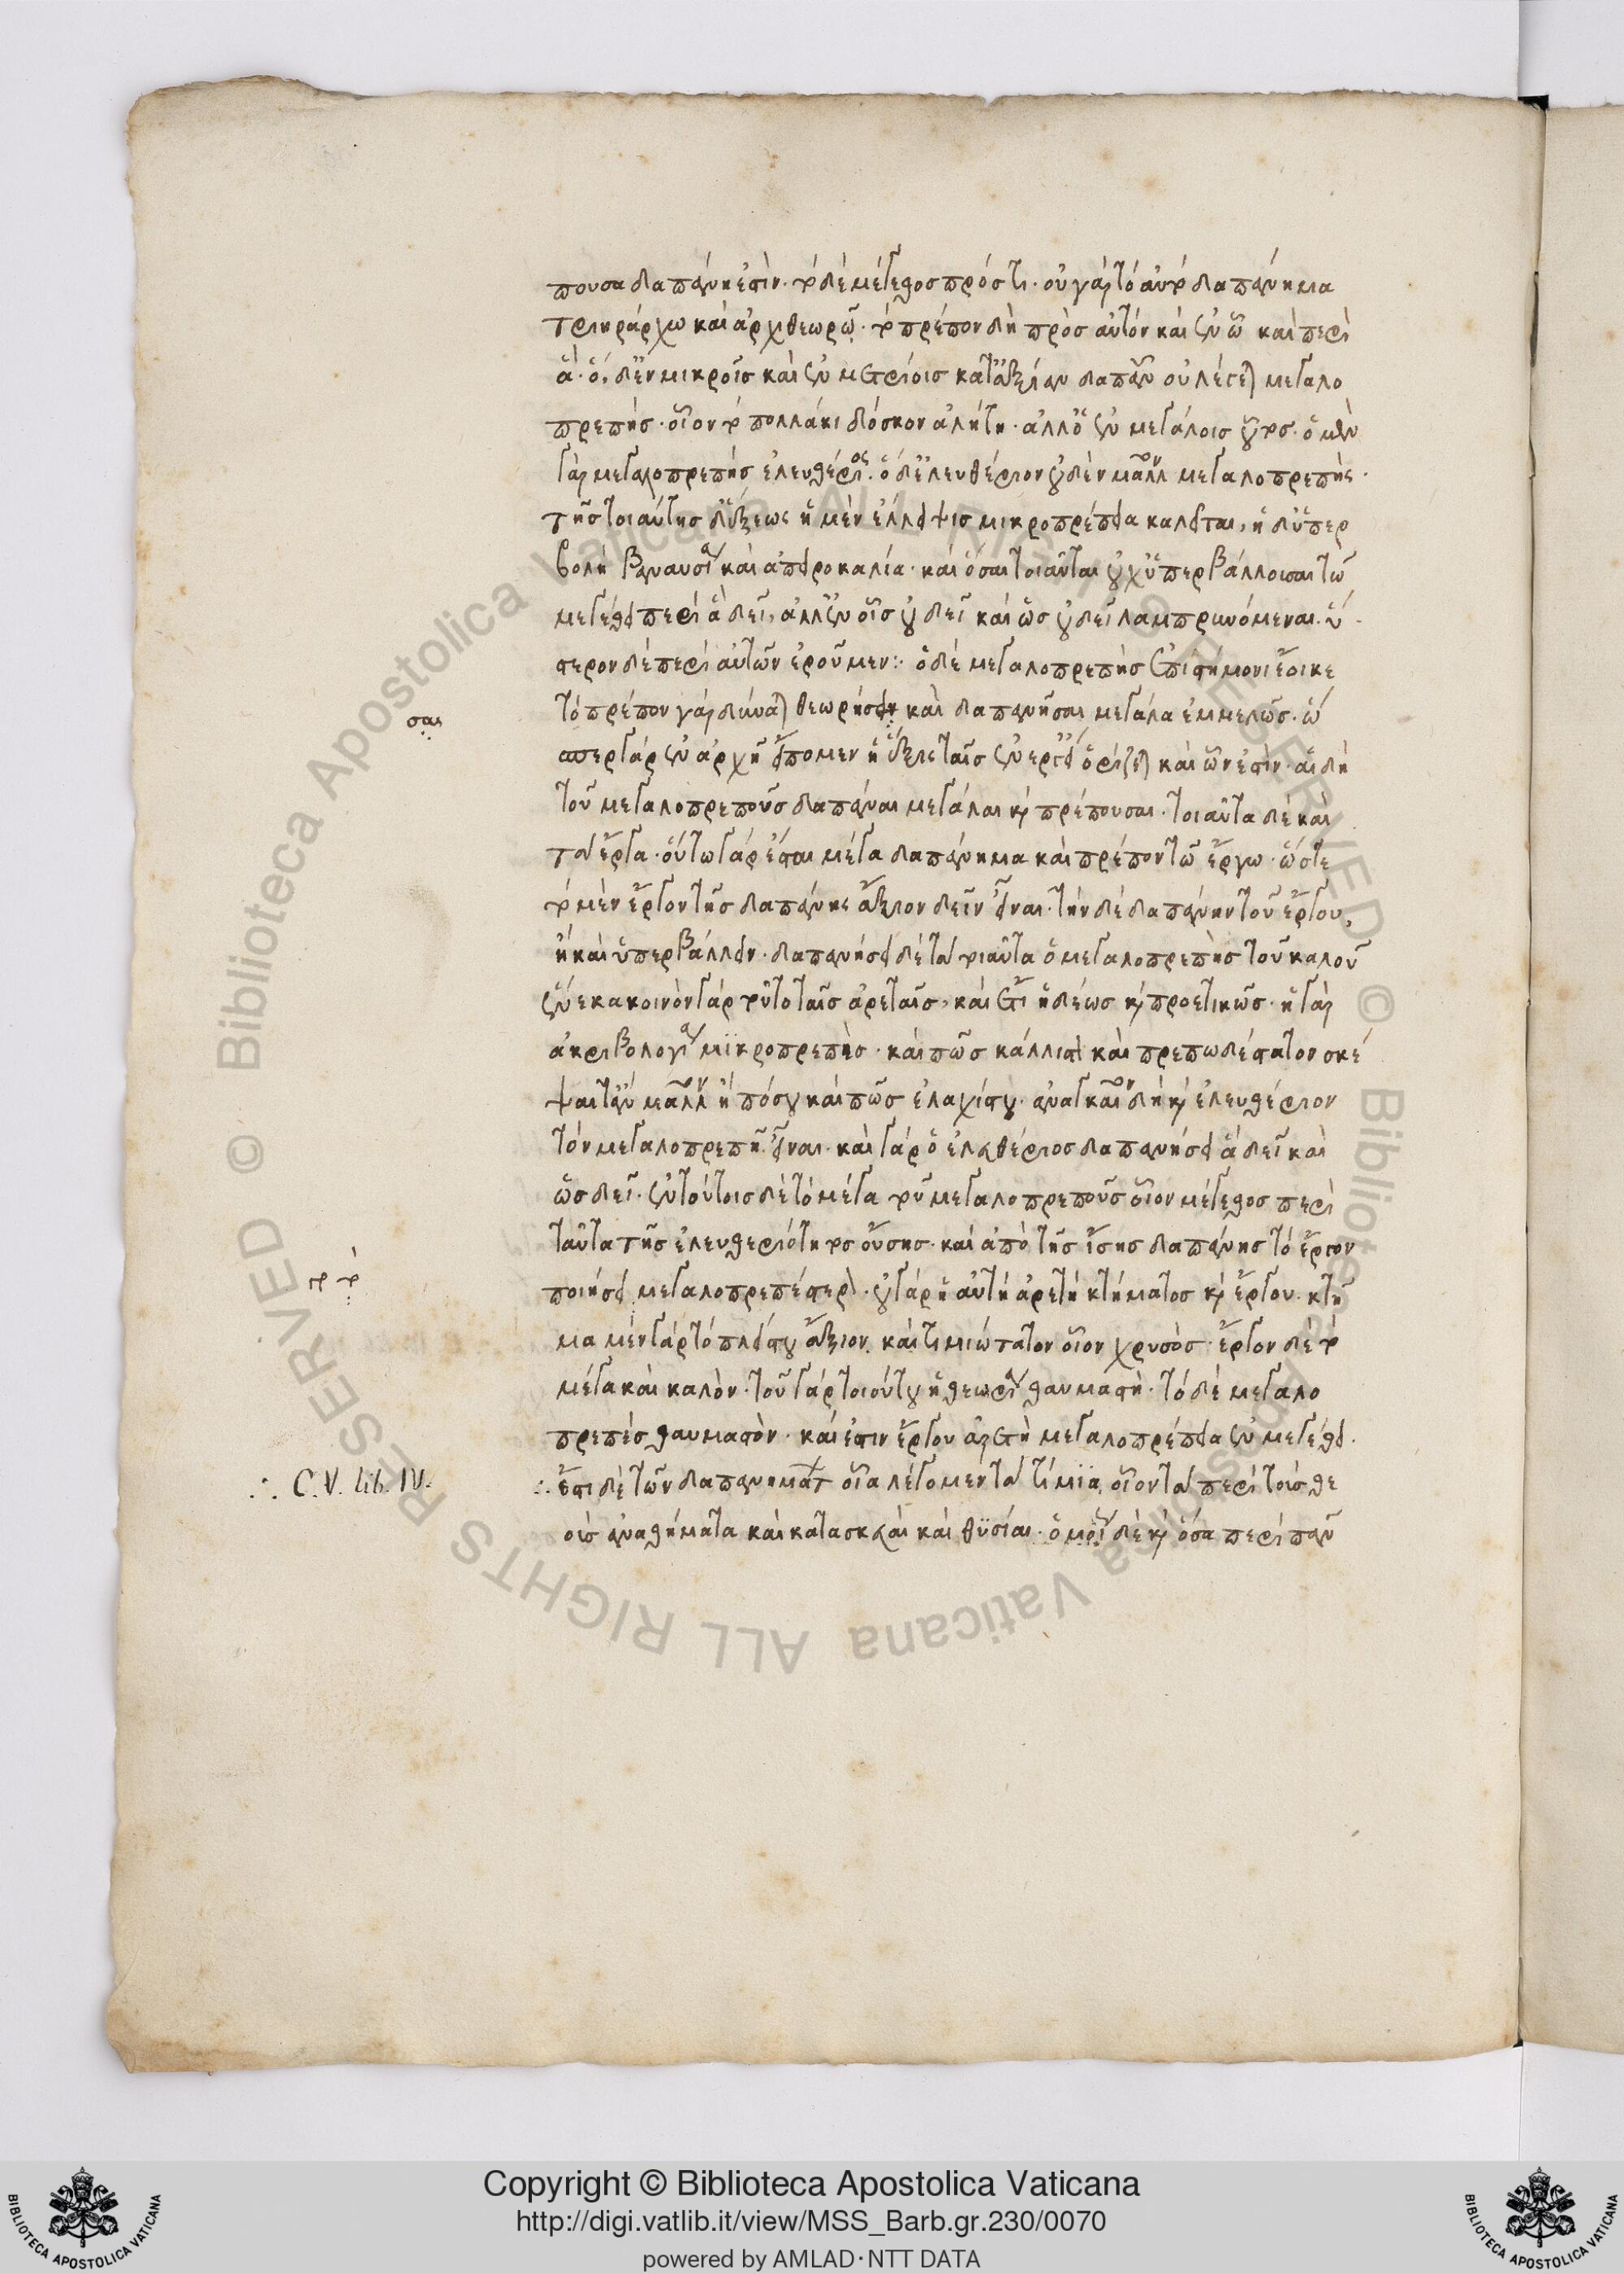 πουσα δαπάνη ἐστὶν· τὸ δὲ μέγεθος πρός τι· οὐ γὰρ τὸ αὐτὸ δαπάνημα
τριηράρχω καὶ ἀρχιθεωρῶ· τὸ πρέπον δὴ πρὸς αὐτὸν καὶ ἐν ὧ καὶ περὶ
ἅ· ὁ δ' ἐν μικροῖς καὶ ἐν μετρίοις κατ' ἀξίαν δαπανῶν οὐ λέγεται μεγαλο
πρεπής· οἷον τὸ πολλάκι δόσκον ἀλήτη· ἀλλ' ὁ ἐν μεγάλοις οὕτως· ὁ μὲν
γὰρ μεγαλοπρεπὴς ἐλευθέριος· ὁ δ' ἐλευθέριος οὐδὲν μᾶλλον μεγαλοπρεπής·
τῆς τοιαύτης δ' ἕξεως ἡ μὲν ἔλλειψις μικροπρέπεια καλεῖται, ἡ δ' ὑπερ
βολὴ βαναυσία καὶ ἀπειροκαλία· καὶ ὅσαι τοιαῦται οὐχ ὑπερβάλλουσαι τῶ
μεγέθει περὶ ἃ δεῖ, ἀλλ' ἐν οἷς οὐ δεῖ καὶ ὡς οὐ δεῖ λαμπρυνόμεναι· ὕ
στερον δὲ περὶ αὐτῶν ἐροῦμεν: ὁ δὲ μεγαλοπρεπὴς ἐπιστήμονι ἔοικε
τὸ πρέπον γὰρ δύναται θεωρῆσαι καὶ δαπανῆσαι μεγάλα ἐμμελῶς· ὥ
σαι
σπερ γὰρ ἐν ἀρχῆ εἴπομεν ἡ ἕξις ταῖς ἐνεργείαις ὁρίζεται καὶ ὧν ἐστὶν· αἱ δὴ
τοῦ μεγαλοπρεποῦς δαπάναι μεγάλαι καὶ πρέπουσαι· τοιαῦτα δὲ καὶ
τὰ ἔργα· οὕτω γὰρ ἔσται μέγα δαπάνημα καὶ πρέπον τῶ ἔργω· ὥστε
τὸ μὲν ἔργον τῆς δαπάνης ἄξιον δεῖν εἶναι· τὴν δὲ δαπάνην τοῦ ἔργου,
ἢ καὶ ὑπερβάλλειν· δαπανήσει δὲ τὰ τοιαῦτα ὁ μεγαλοπρεπὴς τοῦ καλοῦ
ἕνεκα κοινὸν γὰρ τοῦτο ταῖς ἀρεταῖς, καὶ ἔτι ἡδέως καὶ προετικῶς· ἡ γὰρ
ἀκριβολογία μικροπρεπὴς· καὶ πῶς κάλλιστα καὶ πρεπωδέστατον σκέ
ψαιτ' ἂν μᾶλλον ἢ πόσου καὶ πῶς ἐλαχίστου· ἀναγκαῖον δὴ καὶ ἐλευθέριον
τὸν μεγαλοπρεπῆ εἶναι· καὶ γὰρ ὁ ἐλευθέριος δαπανήσει ἃ δεῖ καὶ
ὡς δεῖ· ἐν τούτοις δὲ τὸ μέγα τοῦ μεγαλοπρεποῦς οἷον μέγεθος περὶ
ταῦτα τῆς ἐλευθεριότητος οὔσης· καὶ ἀπὸ τῆς ἴσης δαπάνης τὸ ἔργον
ποιήσει μεγαλοπρεπέστερον· οὐ γὰρ ἡ αὐτὴ ἀρετὴ κτήματος καὶ ἔργου· κτῆ
μα μὲν γὰρ τὸ πλείστου ἄξιον καὶ τιμιώτατον οἷον χρυσὸς· ἔργον δὲ τὸ
μέγα καὶ καλὸν· τοῦ γὰρ τοιούτου ἡ θεωρία θαυμαστὴ· τὸ δὲ μεγαλο
πρεπὲς θαυμαστὸν· καὶ ἔστιν ἔργου ἀρετὴ μεγαλοπρέπεια ἐν μεγέθει·
∴ C. V. lib. IV.
∴ ἔστι δὲ τῶν δαπανημάτων οἷα λέγομεν τὰ τίμια, οἷον τὰ περὶ τοὺς θε
οὺς ἀναθήματα καὶ κατασκευαὶ καὶ θυσίαι· ὁμοίως δὲ καὶ ὅσα περὶ πᾶν
Copyright © Biblioteca Apostolica Vaticana
http://digi.vatlib.it/view/MSS_Barb.gr.230/0070
powered by AMLAD·NTT DATA
BIBLIOTECA APOSTOLICA VATICANA
BIBLIOTECA APOSTOLICA VATICANA
© Biblioteca Apostolica Vaticana ALL RIGHTS RESERVED
© Biblioteca Apostolica Vaticana ALL RIGHTS RESERVED